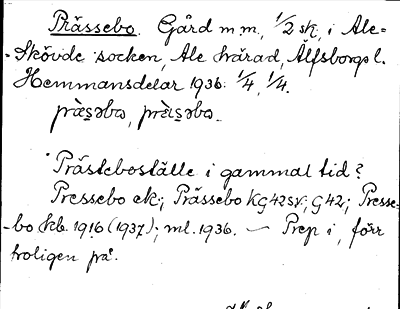 Prässebo. Gård m m, 1/2 sk, i Ale-
-Skövde socken, Ale härad, Älfsborgs l.
Hemmansdelar 1936: 1/4, 1/4.
Prästeboställe i gammal tid?
Pressebo ek; Prässebo KG42SV; G42; Presse-
-bo kb. 1916 (1937); ml. 1936. — Prep i, förr
troligen på.